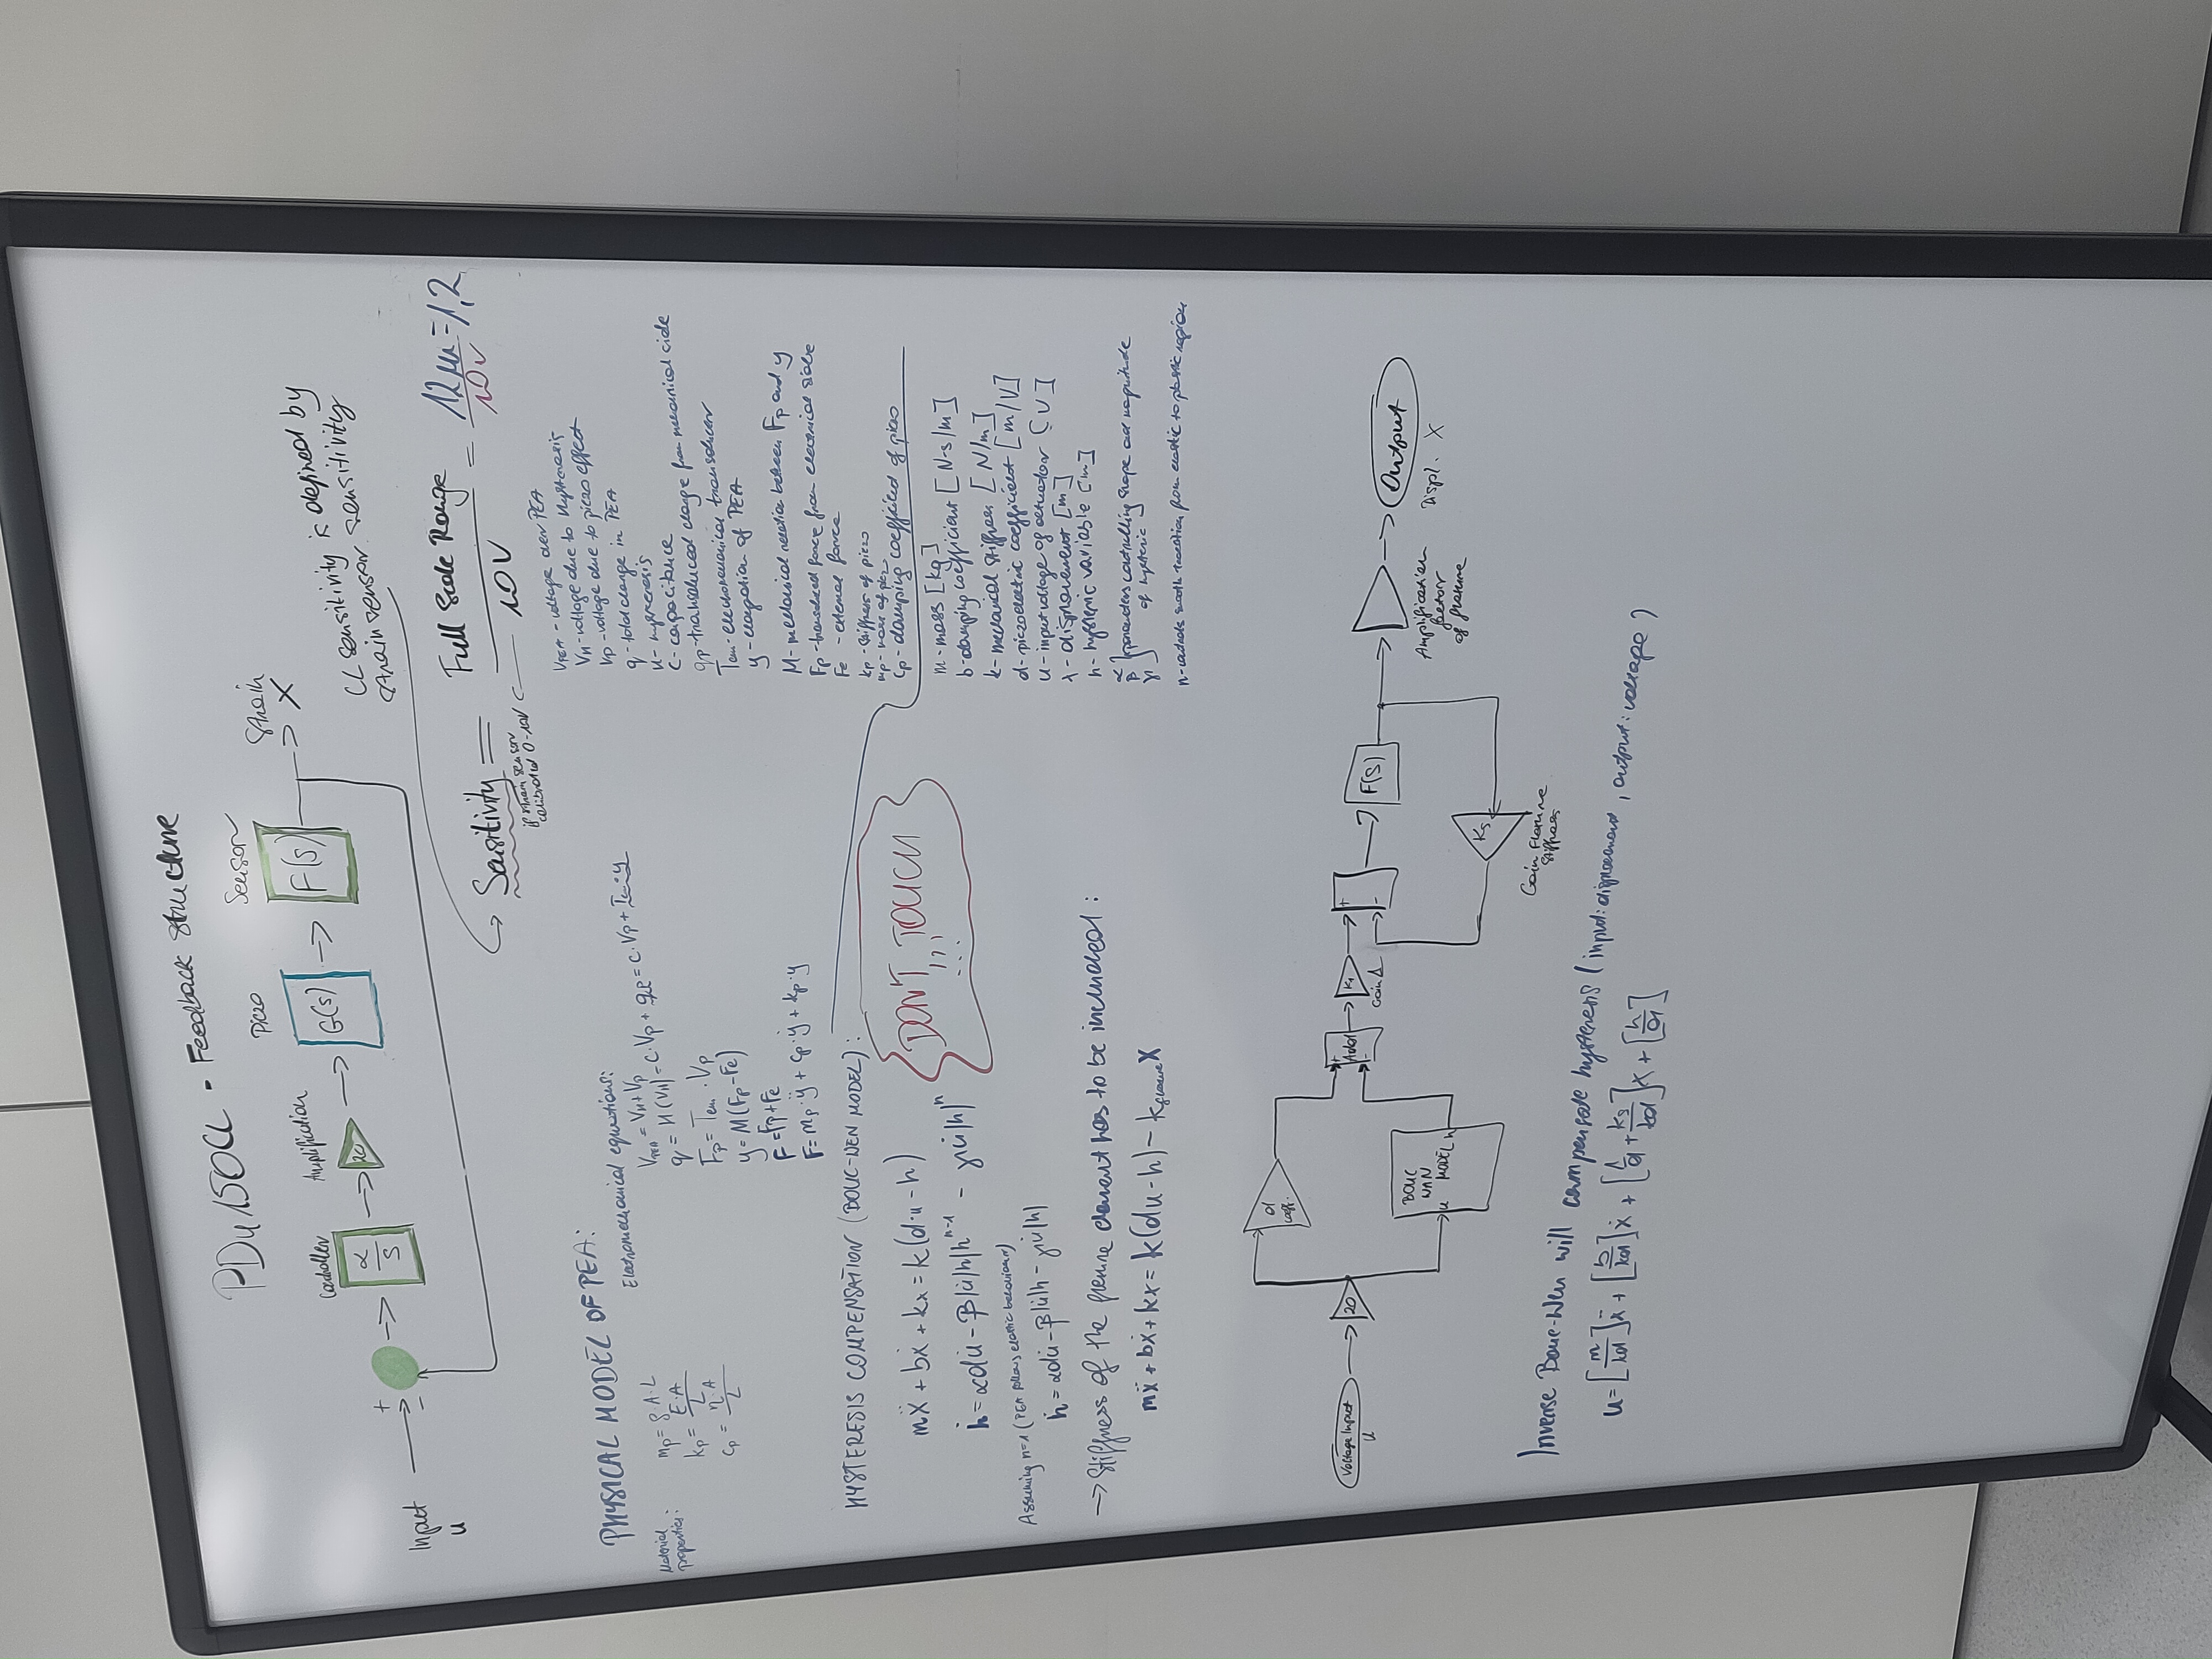 PDu150CL - Feedback structure
Controller
Amplification
Piezo
Sensor
Strain
Input
u
+
-
α/s
20
G(s)
F(s)
X
CL sensitivity is defined by
strain sensor sensitivity
Sensitivity = Full Scale Range / 10V = 12µm / 10V = 1,2
if strain sensor
calibrated 0-10V
PHYSICAL MODEL OF PEA:
Material
properties:
mp = ρ·A·L
kp = E·A / L
cp = η·A / L
Electromechanical equations:
VPEA = VH + Vp
q = H(VH) = C·Vp + qp = C·Vp + Tem·y
Fp = Tem·Vp
y = M(Fp - Fe)
F = Fp + Fe
F = mp·ÿ + cp·ẏ + kp·y
VPEA - voltage over PEA
VH - voltage due to hysteresis
Vp - voltage due to piezo effect
q - total charge in PEA
H - hysteresis
C - capacitance
qp - transduced charge from mechanical side
Tem - electromechanical transducer
y - elongation of PEA
M - mechanical relation between Fp and y
Fp - transduced force from electrical side
Fe - external force
kp - stiffness of piezo
mp - mass of piezo
cp - damping coefficient of piezo
HYSTERESIS COMPENSATION (BOUC-WEN MODEL):
mẍ + bẋ + kx = k(d·u - h)
ḣ = αdu̇ - β|u̇|h|h|ⁿ⁻¹ - γu̇|h|ⁿ
DON'T TOUCH
!!!
Assuming n=1 (PEA follows elastic behaviour)
ḣ = αdu̇ - β|u̇|h - γu̇|h|
m - mass [kg]
b - damping coefficient [N·s/m]
k - mechanical stiffness [N/m]
d - piezoelectric coefficient [m/V]
u - input voltage of actuator [V]
x - displacement [m]
h - hysteric variable [m]
α
β } parameters controlling shape and magnitude
γ of hysteric
n - controls smooth transition from elastic to plastic region
-> Stiffness of the flexure element has to be included:
mẍ + bẋ + kx = k(du - h) - kflexure x
Voltage Input
u
20
d
coeff.
BOUC
WEN
MODEL
u
h
Add
+
-
K1
Gain 1
+
-
F(s)
Ks
Gain Flexure
Stiffness
Amplification
factor
of flexure
Output
Displ. X
Inverse Bouc-Wen will compensate hysteresis (input: displacement, output: voltage)
u = [m/kd]ẍ + [b/kd]ẋ + [1/d + ks/kd]x + [h/d]